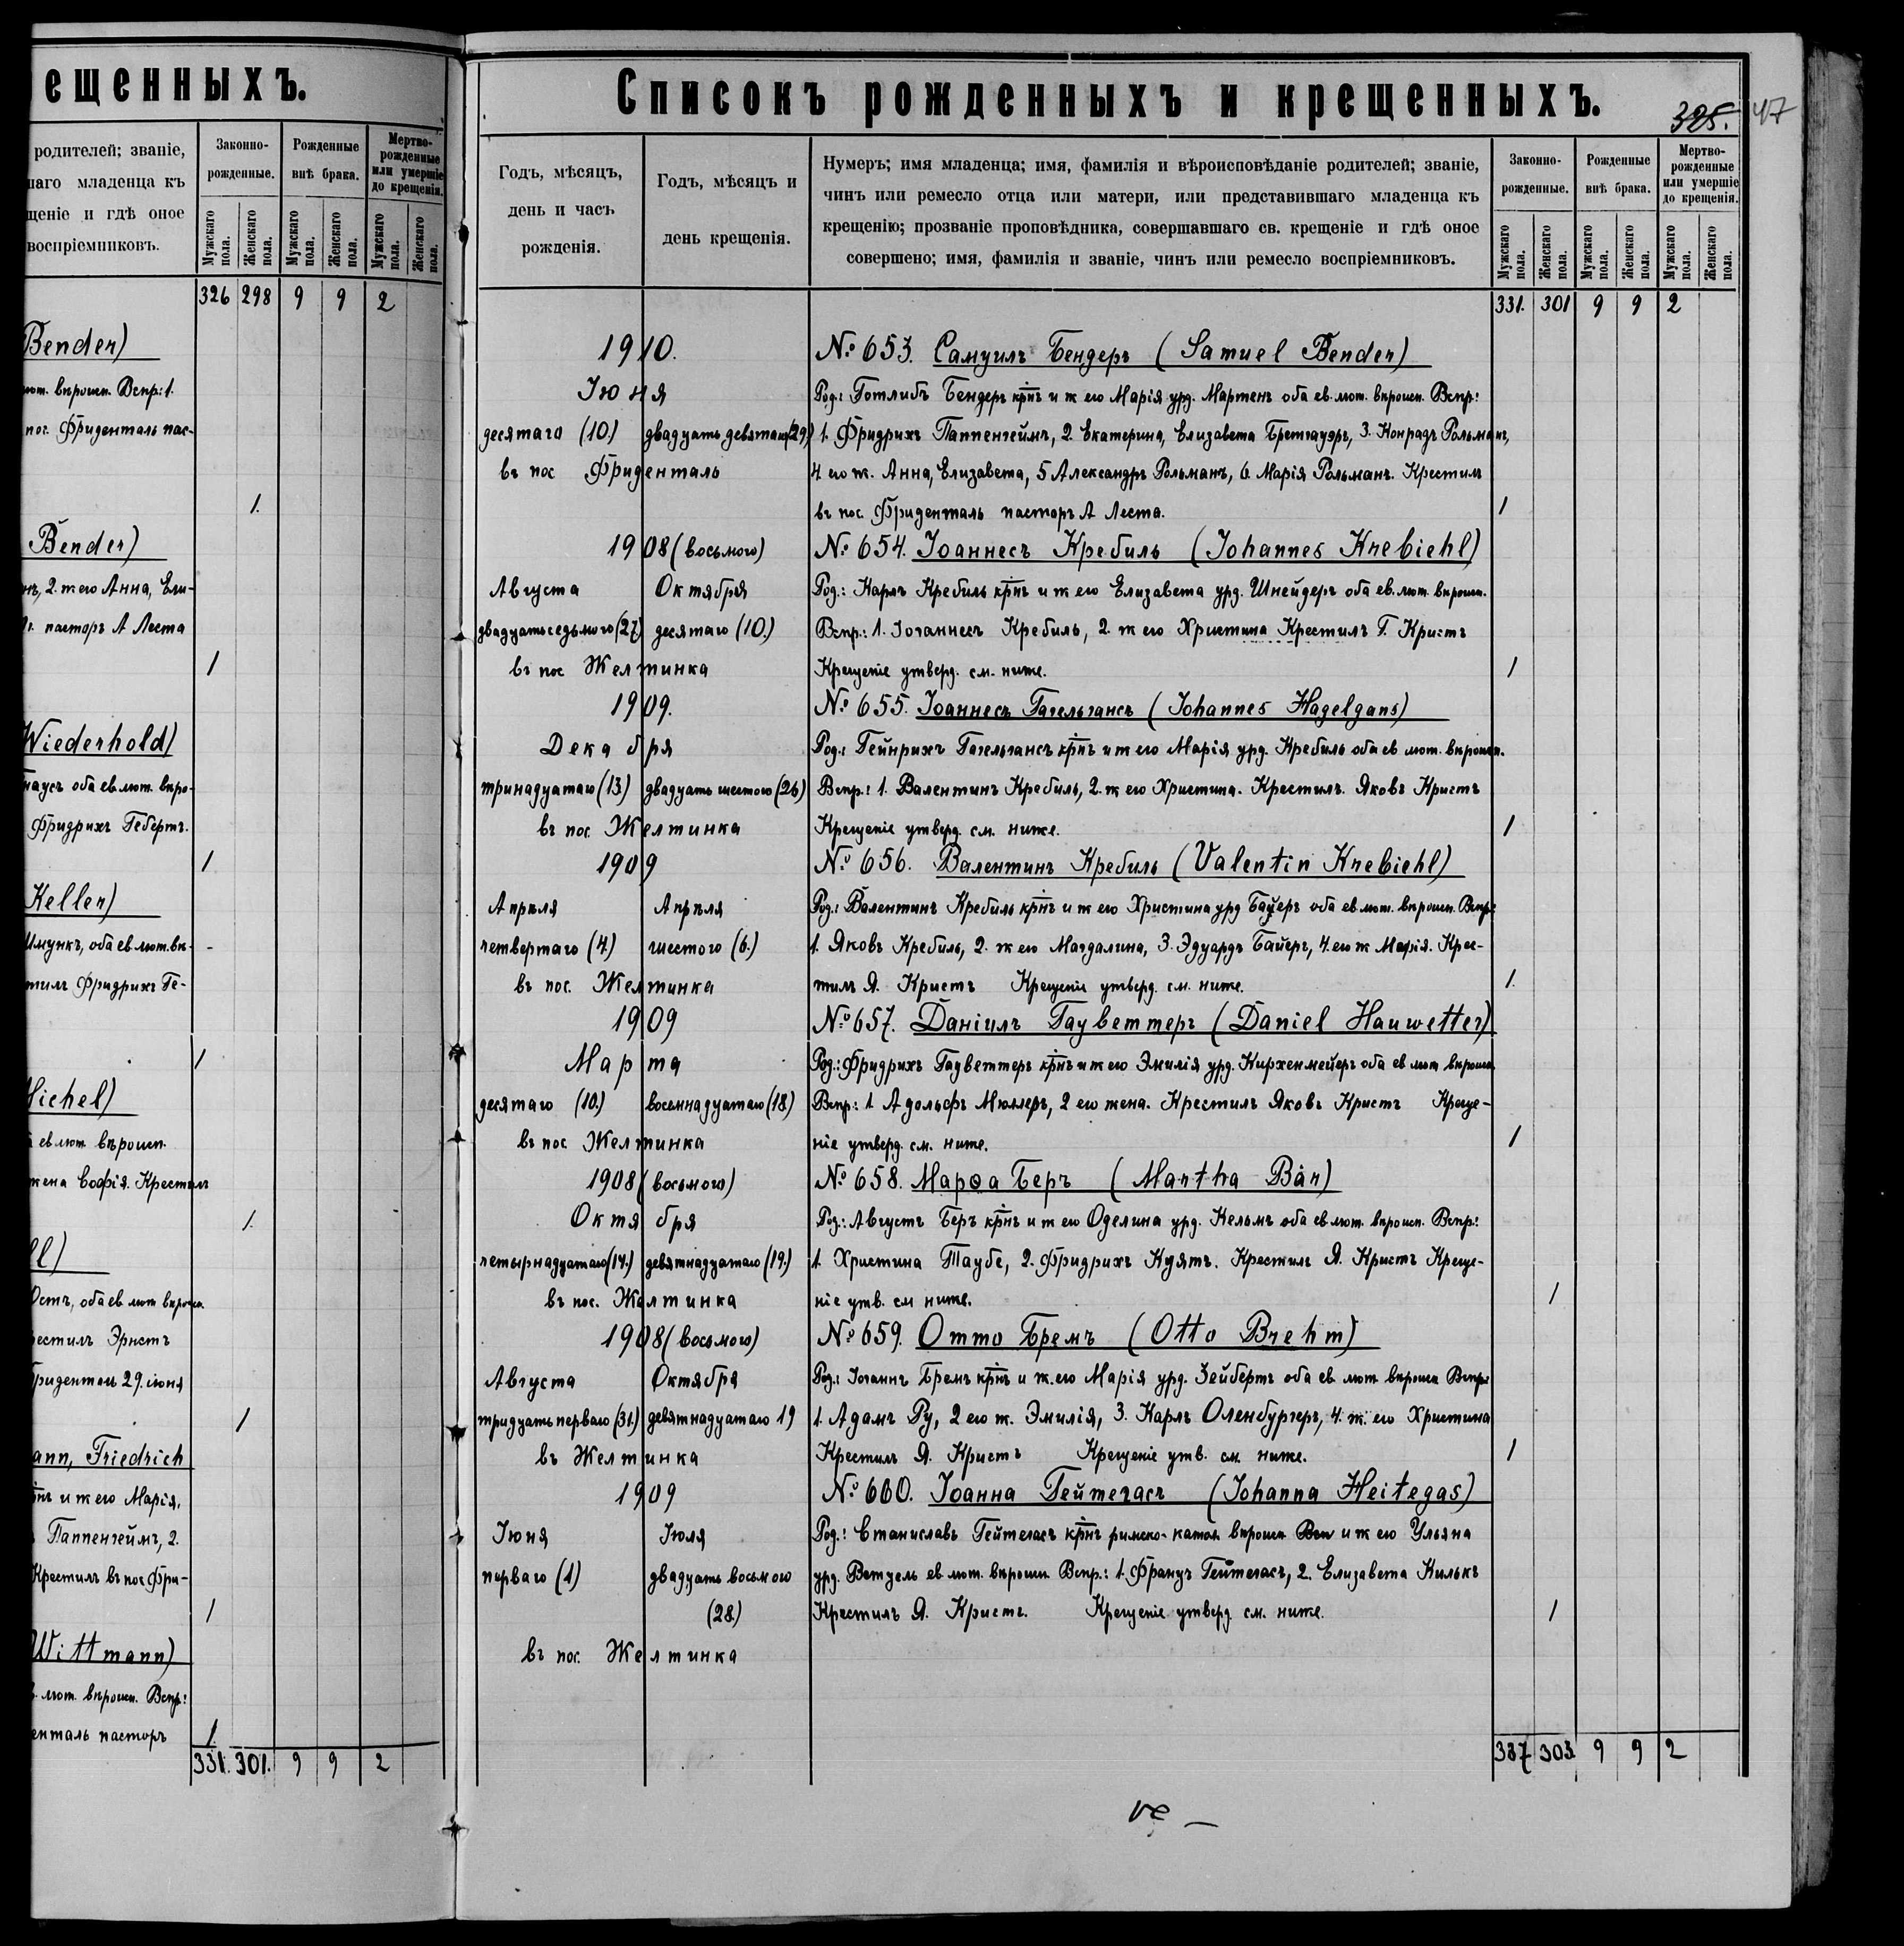 ещенныхъ.
родителей; званіе,
шаго младенца къ
щеніе и гдѣ оное
воспріемниковъ.
Законно-
рожденные.
Рожденные
внѣ брака.
Мертво-
рожденные
или умершіе
до крещенія.
Мужскаго пола.
Женскаго пола.
Мужскаго пола.
Женскаго пола.
Мужскаго пола.
Женскаго пола.
326 298 9 9 2
Bender)
лют. вѣроисп. Вспр: 1.
пос. Фриденталь пас-
1.
Bender)
нъ, 2. ж его Анна, Ели-
пасторъ А Леста
1
Wiederhold)
наусъ оба ев. лют. вѣро-
Фридрихъ Гебертъ.
1
Keller)
Шмункъ, оба ев. лют. вѣ-
тилъ Фридрихъ Ге-
1
Michel)
ев лют. вѣроисп.
жена Софія. Крестилъ
1.
ll)
Остъ, оба ев. лют вѣроисп.
рестилъ Эрнстъ
Фридентал 29. іюня
1
ann, Friedrich
крнъ и ж его Марія,
Паппенгеймъ, 2.
Крестилъ въ пос. Фри-
1
Wittmann)
в. лют. вѣроисп. Вспр:
енталь пасторъ
1.
331. 301. 9 9 2
Списокъ рожденныхъ и крещенныхъ.
325. 47
Годъ, мѣсяцъ,
день и часъ
рожденія.
Годъ, мѣсяцъ и
день крещенія.
Нумеръ; имя младенца; имя, фамилія и вѣроисповѣданіе родителей; званіе,
чинъ или ремесло отца или матери, или представившаго младенца къ
крещенію; прозваніе проповѣдника, совершавшаго св. крещеніе и гдѣ оное
совершено; имя, фамилія и званіе, чинъ или ремесло воспріемниковъ.
Законно-
рожденные.
Рожденные
внѣ брака.
Мертво-
рожденные
или умершіе
до крещенія.
Мужскаго пола.
Женскаго пола.
Мужскаго пола.
Женскаго пола.
Мужскаго пола.
Женскаго пола.
331. 301 9 9 2
1910. № 653. Самуилъ Бендеръ (Samuel Bender)
Іюня Род.: Готлибъ Бендеръ крнъ и ж его Марія урд. Мартенъ оба ев. лют. вѣроисп. Вспр:
десятаго (10.) двадцать девятаго (29.) 1. Фридрихъ Паппенгеймъ, 2. Екатерина, Елизавета Бретгауэръ, 3. Конрадъ Рольманъ,
въ пос Фриденталь 4 его ж. Анна, Елизавета, 5 Александръ Рольманъ, 6. Марія Рольманъ. Крестилъ
въ пос. Фриденталь пасторъ А Леста. 1
1908 (восьмого) № 654. Іоаннесъ Кребиль (Johannes Krebiehl)
Августа Октября Род.: Карлъ Кребиль крнъ и ж его Елизавета урд. Шнейдеръ оба ев. лют. вѣроисп.
двадцать седьмого (27) десятаго (10.) Вспр.: 1. Іоганнесъ Кребиль, 2. ж его Христина Крестилъ Г. Кристъ
въ пос Желтинка Крещеніе утверд. см. ниже. 1
1909. № 655. Іоаннесъ Гагельгансъ (Johannes Hagelgans)
Декабря Род.: Гейнрихъ Гагельгансъ крнъ и ж его Марія урд. Кребиль оба ев лют. вѣроисп.
тринадцатаго (13.) двадцать шестого (26) Вспр.: 1. Валентинъ Кребиль, 2. ж его Христина. Крестилъ. Яковъ Кристъ
въ пос. Желтинка Крещеніе утверд. см. ниже. 1
1909 № 656. Валентинъ Кребиль (Valentin Krebiehl)
Апрѣля Апрѣля Род.: Валентинъ Кребиль крнъ и ж его Христина урд Байеръ оба ев. лют. вѣроисп. Вспр:
четвертаго (4.) шестого (6.) 1. Яковъ Кребиль, 2. ж его Магдалина, 3. Эдуардъ Байеръ, 4. его ж Марія. Крес-
въ пос. Желтинка тилъ Я. Кристъ Крещеніе утверд. см. ниже. 1.
1909 № 657. Даніилъ Гауветтеръ (Daniel Hauwetter)
Марта Род.: Фридрихъ Гауветтеръ крнъ и ж его Эмилія урд. Кирхенмейеръ оба ев лют вѣроисп
десятаго (10.) восемнадцатаго (18.) Вспр: 1. Адольфъ Мюллеръ, 2 его жена. Крестилъ Яковъ Кристъ Креще-
въ пос Желтинка ніе утверд. см. ниже. 1
1908 (восьмого) № 658. Марѳа Беръ (Martha Bär)
Октября Род.: Августъ Беръ крнъ и ж его Оделина урд. Кельмъ оба ев лют. вѣроисп. Вспр.:
четырнадцатаго (14.) девятнадцатаго (19.) 1. Христина Таубе, 2. Фридрихъ Куятъ. Крестилъ Я. Кристъ Креще-
въ пос. Желтинка ніе утв. см ниже. 1
1908 (восьмого) № 659. Отто Бремъ (Otto Brehm)
Августа Октября Род.: Іоганъ Бремъ крнъ и ж. его Марія урд. Зейбертъ оба ев лют вѣроисп Вспр:
тридцать перваго (31.) девятнадцатаго 19 1. Адамъ Ру, 2 его ж. Эмилія, 3. Карлъ Оленбургеръ, 4. ж. его Христина
въ Желтинка Крестилъ Я. Кристъ Крещеніе утв. см. ниже. 1
1909 № 660. Іоанна Гейтегасъ (Johanna Heitegas)
Іюня Іюля Род.: Станиславъ Гейтегасъ крнъ римско-катол. вѣроисп и ж его Ульяна
перваго (1) двадцать восьмого урд. Ветцель ев лют. вѣроисп. Вспр.: 1. Францъ Гейтегасъ, 2. Елизавета Килькъ
(28.) Крестилъ Я. Кристъ. Крещеніе утверд. см. ниже. 1
въ пос. Желтинка
337 303. 9 9 2